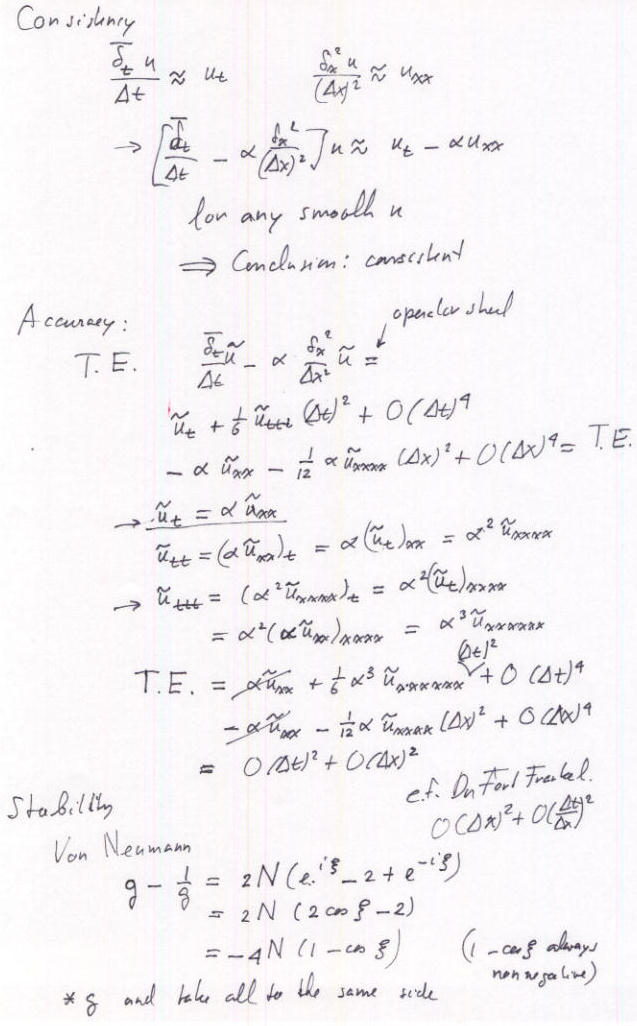 Consistency
δ̅ₜ u / Δt ≈ uₜ    δₓ² u / (Δx)² ≈ uₓₓ
→ [ δ̅ₜ / Δt − α δₓ² / (Δx)² ] u ≈ uₜ − αuₓₓ
for any smooth u
⇒ Conclusion: consistent
Accuracy:
operator sheet
T.E.    δ̅ₜũ / Δt − α δₓ² / Δx² ũ =
ũₜ + 1/6 ũₜₜₜ (Δt)² + O(Δt)⁴
− α ũₓₓ − 1/12 α ũₓₓₓₓ (Δx)² + O(Δx)⁴ = T.E.
→ ũₜ = α ũₓₓ
ũₜₜ = (α ũₓₓ)ₜ = α (ũₜ)ₓₓ = α² ũₓₓₓₓ
→ ũₜₜₜ = (α² ũₓₓₓₓ)ₜ = α² (ũₜ)ₓₓₓₓ
= α² (α ũₓₓ)ₓₓₓₓ = α³ ũₓₓₓₓₓₓ
T.E. = αũₓₓ + 1/6 α³ ũₓₓₓₓₓₓ (Δt)² + O (Δt)⁴
− αũₓₓ − 1/12 α ũₓₓₓₓ (Δx)² + O (Δx)⁴
= O(Δt)² + O(Δx)²
c.f. Du Fort Frankel.
O(Δx)² + O(Δt/Δx)²
Stability
Von Neumann
g − 1/g = 2N (e^{iξ} − 2 + e^{−iξ})
= 2N (2 cos ξ − 2)
= −4N (1 − cos ξ)    (1 − cos ξ always
nonnegative)
* g and take all to the same side